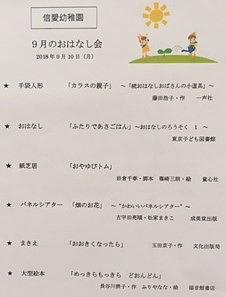 信愛幼稚園
9月のおはなし会
2018年9月10日（月）
★ 手袋人形 「カラスの親子」 ～「続おはなしおばさんの小道具」～
藤田浩子・作 一声社
★ おはなし 「ふたりであさごはん」～おはなしのろうそく 1 ～
東京子ども図書館
★ 紙芝居 「おやゆびトム」
岩倉千春・脚本 篠崎三朗・絵 童心社
★ パネルシアター 「畑のお花」 ～"かわいいパネルシアター"～
古宇田亮順・松家まきこ 成美堂出版
★ まきえ 「おおきくなったら」 玉田京子・作 文化出版局
★ 大型絵本 「めっきらもっきら どおんどん」
長谷川摂子・作 ふりやなな・絵 福音館書店